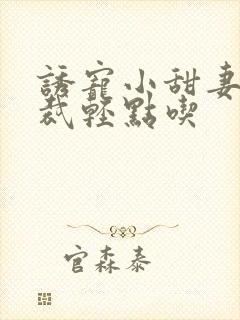 誘寵小甜妻
裁輕點喫
官森泰